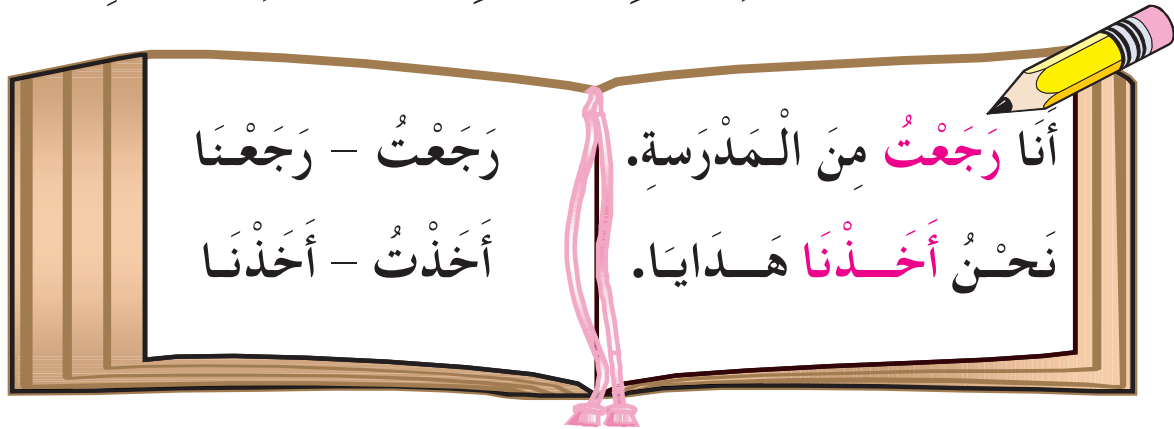 أَنَا رَجَعْتُ مِنَ الْـمَدْرَسةِ.
نَحْـنُ أَخَـــذْنَا هَـــدَايَـا.
رَجَعْتُ – رَجَعْـنَا
أَخَذْتُ – أَخَذْنَـا